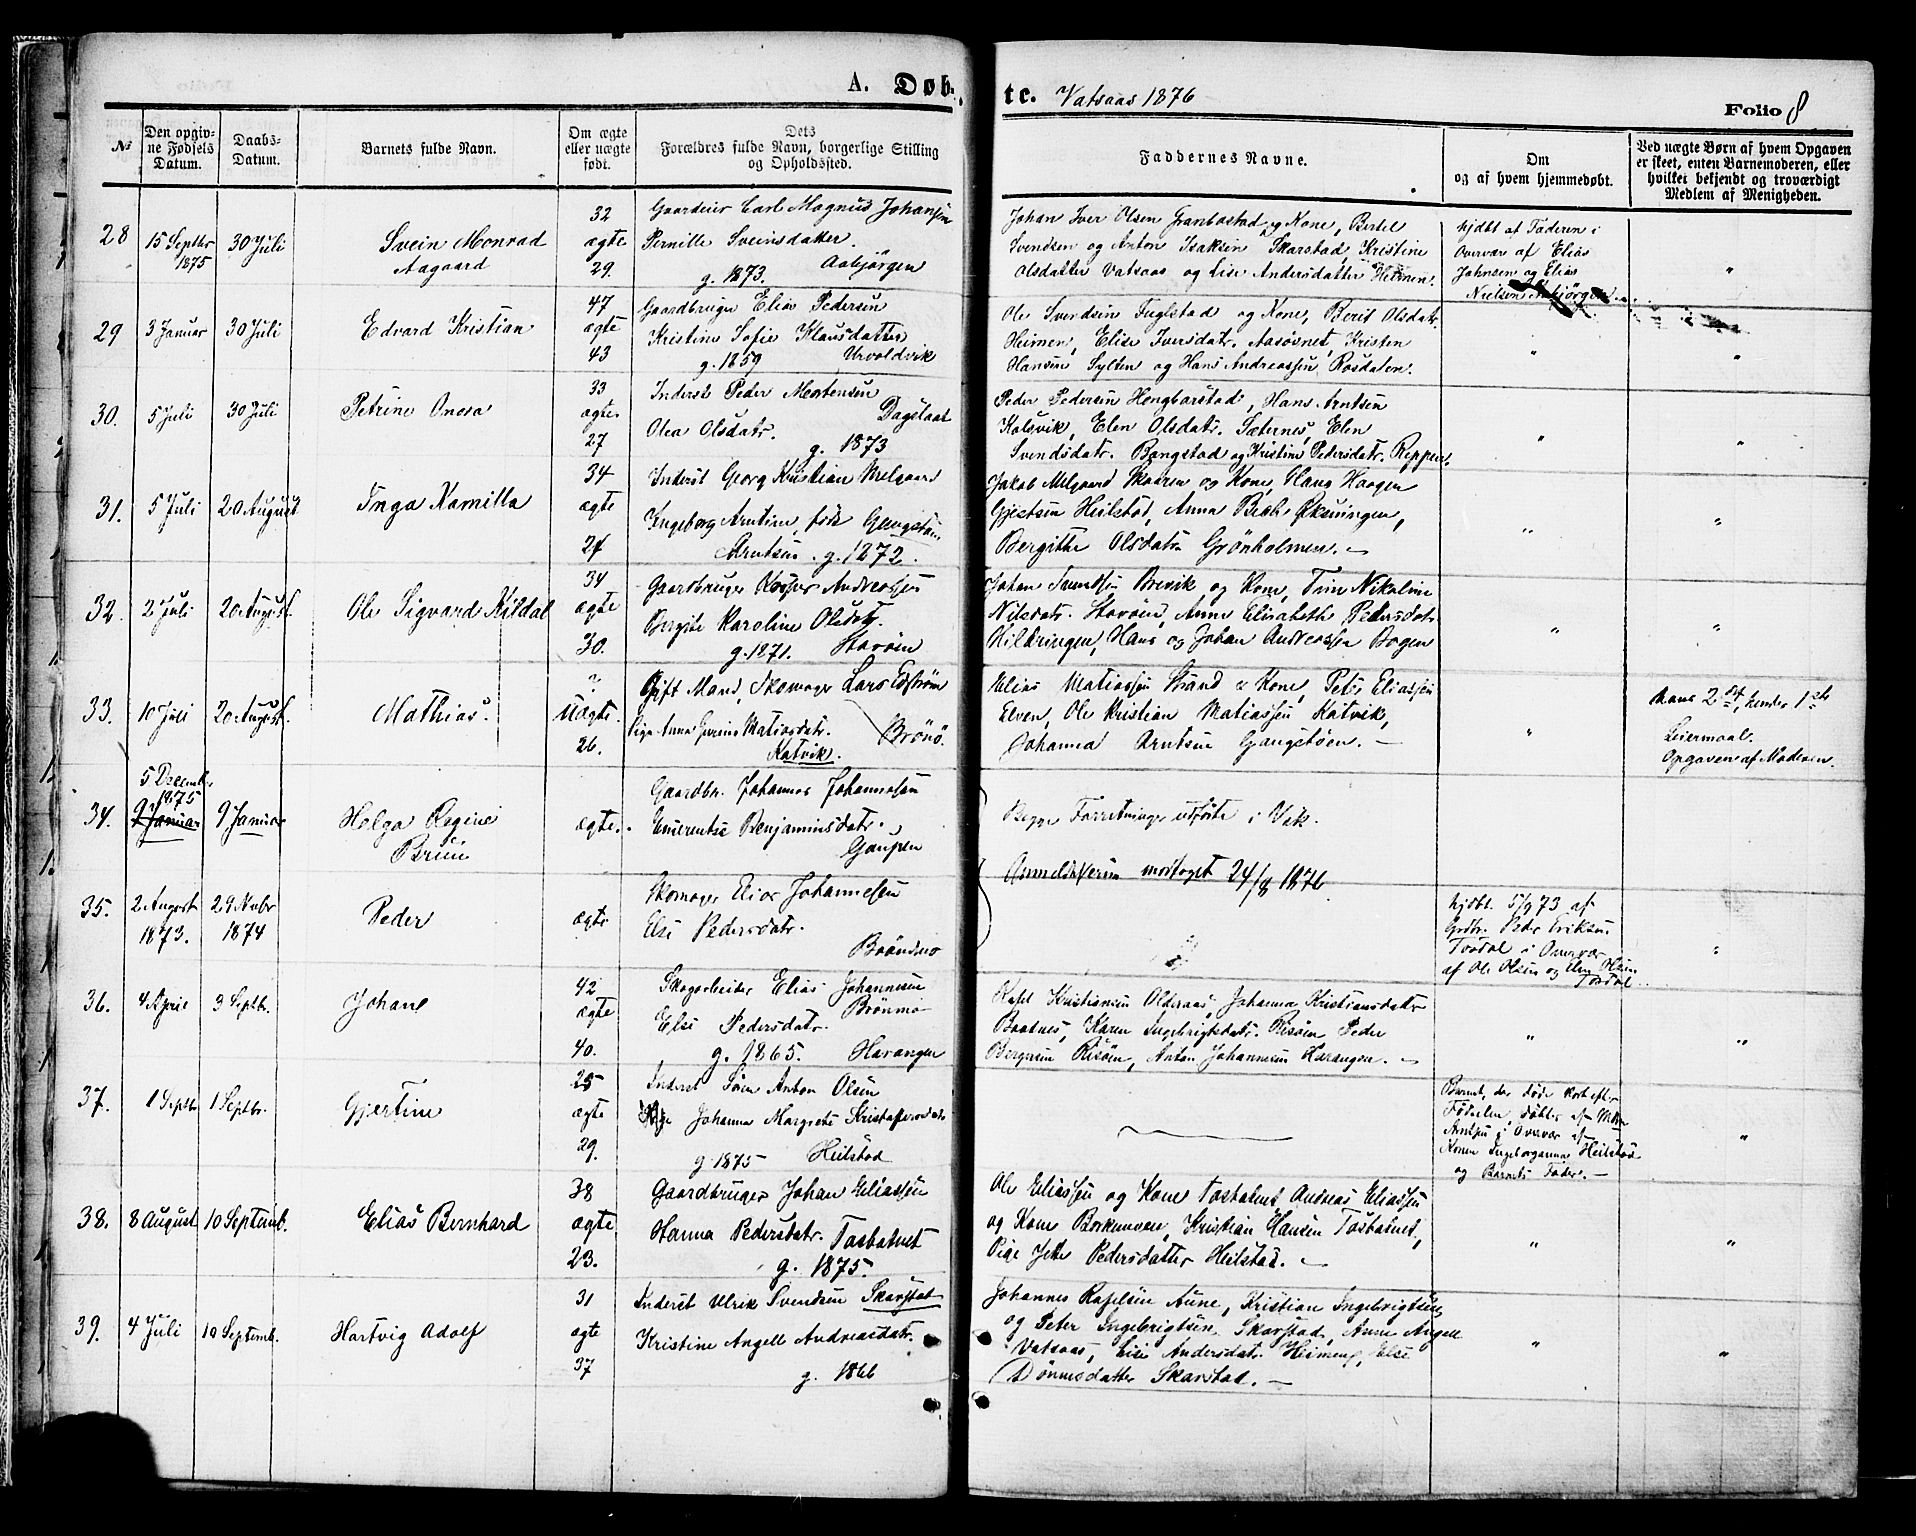 A. Døb-
te. Vatsaas 1876
Folio 8
№
Den opgiv-
ne Fødsels
Datum.
Daabs-
Datum.
Barnets fulde Navn.
Om ægte
eller uægte
født.
Dets
Forældres fulde Navn, borgerlige Stilling
og Opholdssted.
Faddernes Navne.
Om
og af hvem hjemmedøbt.
Ved uægte Børn af hvem Opgaven
er skeet, enten Barnemoderen, eller
hvilket bekjendt og troværdigt
Medlem af Menigheden.
28
15 Septbr
1875
30 Juli
Svein Monrad
Aagaard
32
ægte
29.
Gaardeier Carl Magnus Johansen
Pernille Sveinsdatter.
Aabjörgen
g. 1873.
Johan Iver Olsen Granbostad og Kone, Bertel
Svendsen og Anton Isaksen Skarstad, Kristine
Olsdatter Vatsaas og Lise Andersdatter Heimen.
hjdbt af Faderen i
Overvær af Elias
Johnsen og Elias
Nielsen Aabjörgen
"
29
3 Januar
30 Juli
Edvard Kristian
47
ægte
43
Gaardbruger Elias Pedersen
Kristine Sofie Klausdatter
g. 1859 Urvoldvik
Ole Svendsen Fuglstad og Kone, Berit Olsdatr.
Heimen, Elise Iversdatr. Aasövnet, Kristen
Hansen Sylten og Hans Andreassen Rosdalen.
"
"
30.
5 Juli
30 Juli
Petrine Onosa
33
ægte
27
Inderst Peder Mortensen
Dagslaat
Olea Olsdatr.
g. 1873
Peder Pedersen Hongbarstad, Hans Arntsen
Kolsvik, Elen Olsdatr. Sæternes, Elen
Svendsdatr. Bangstad og Kristine Pedersdatr. Reppen.
"
"
31.
5 Juli
20 August
Inga Kamilla
34
ægte
27
Inderst Georg Kristian Melgaard
Ingeborg Arntine, född Gangstöen
Arntsen. g. 1872.
Jakob Melgaard Skaaren og Kone, Hans Haagen
Gjertsen Heilstad, Anna Øksningen,
Bergitha Olsdatr. Grönholmen. –
"
"
32.
2 Juli
20 August.
Ole Sigvard Kildal
34
ægte
30.
Gaardbruger Kasper Andreassen
Bergite Karoline Olsdtr.
g. 1871. Storöen
Johan Svendsen Brevik og Kone, Trine Nikoline
Nilsdatr. Storöen, Anne Elisabeth Pedersdatr.
Hildringen, Hans og Johan Andreassen Bogen
"
"
33.
10 Juli
20 August.
Mathias.
?
Uægte.
26.
Gift Mand, Skomager Lars Edström
Brönö.
Pige Anna Matiasdatr.
Katvik.
Elias Matiassen Strand & Kone, Peter Eliassen
Elven, Ole Kristian Matiassen Katvik,
Johanna Arntsen Gangstöen. –
"
Hans 2det, hendes 1ste
Leiermaal.
Opgaven af Moderen.
34.
5 December
1875
9 Januar
9 Januar
Helga Regine
Bruun
ægte.
Gaardbr. Johannes Johannesen
Emerentse Benjaminsdatr.
Gaupen
Begge Forretninger udförte i Vik.
Anmeldelsen modtaget 24/8 1876
35.
2 August
1873.
29 Novbr
1874
Peder
ægte
Skomager Elias Johannesen
Else Pedersdatr.
Bröndmo
hjdbt. 5/9 73 af
Grdbr. Peder Eriksen
Tosdal i Overvær
af Ole Olsen og Elen Olsen
Tosdal.
"
36.
4 April
3 Septbr.
Johane
42
ægte
40.
Skogarbeider Elias Johannesen
Brönmo
Else Pedersdatr.
g. 1865. Harangen
Rafel Kristiansen Olderaas, Johanna Kristiansdatter
Baatnes, Karen Ingebrigtsdatr. Risöen, Peder
Bergersen Risöen, Anton Johannesen Harangen. –
"
"
37.
1 Septbr
1 Septbr.
Gjertine
25
ægte
29.
Inderst Sören Anton Olsen
Johanna Margrete Kristoffersdatr
g. 1875 Heilstad
Barnet, der döde kort efter
Födselen döbtes af
Arntsen i Overvær af
Konen Ingeborganna Heilstad
og Barnets Fader. –
"
38.
8 August
10 Septemb.
Elias Bernhard
38
ægte
23.
Gaardbruger Johan Eliassen
Hanna Pedersdatr. Tosbatnet
g. 1875.
Ole Eliassen og Kone Tosbatnet, Andreas Eliassen
og Kone Borkamoen, Kristian Hansen Tosbatnet,
Pige Jette Pedersdatter Heilstad. –
"
"
39.
4 Juli
10 Septemb.
Hartvig Adolf
31
ægte
37
Inderst Ulrik Svendsen Skarstad
Kristine Angell Andreasdatr.
g. 1866
Johannes Rafelsen Aune, Kristian Ingebrigtsen
og Peter Ingebrigtsen Skarstad, Anne Angell
Vatsaas, Lise Andersdatr. Heimen, Else
Dönnesdatter Skarstad. –
"
"